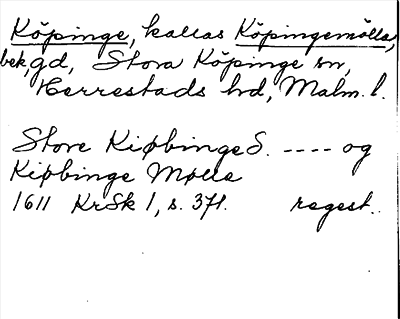 Köpinge, kallas Köpingemölla,
bek,gd, Stora Köpinge sn,
Herrestads hd, Malm. l.
Store KiøbingeS. ---- og
Kiøbinge Mølle
1611 KrSk 1, s. 371. regest.